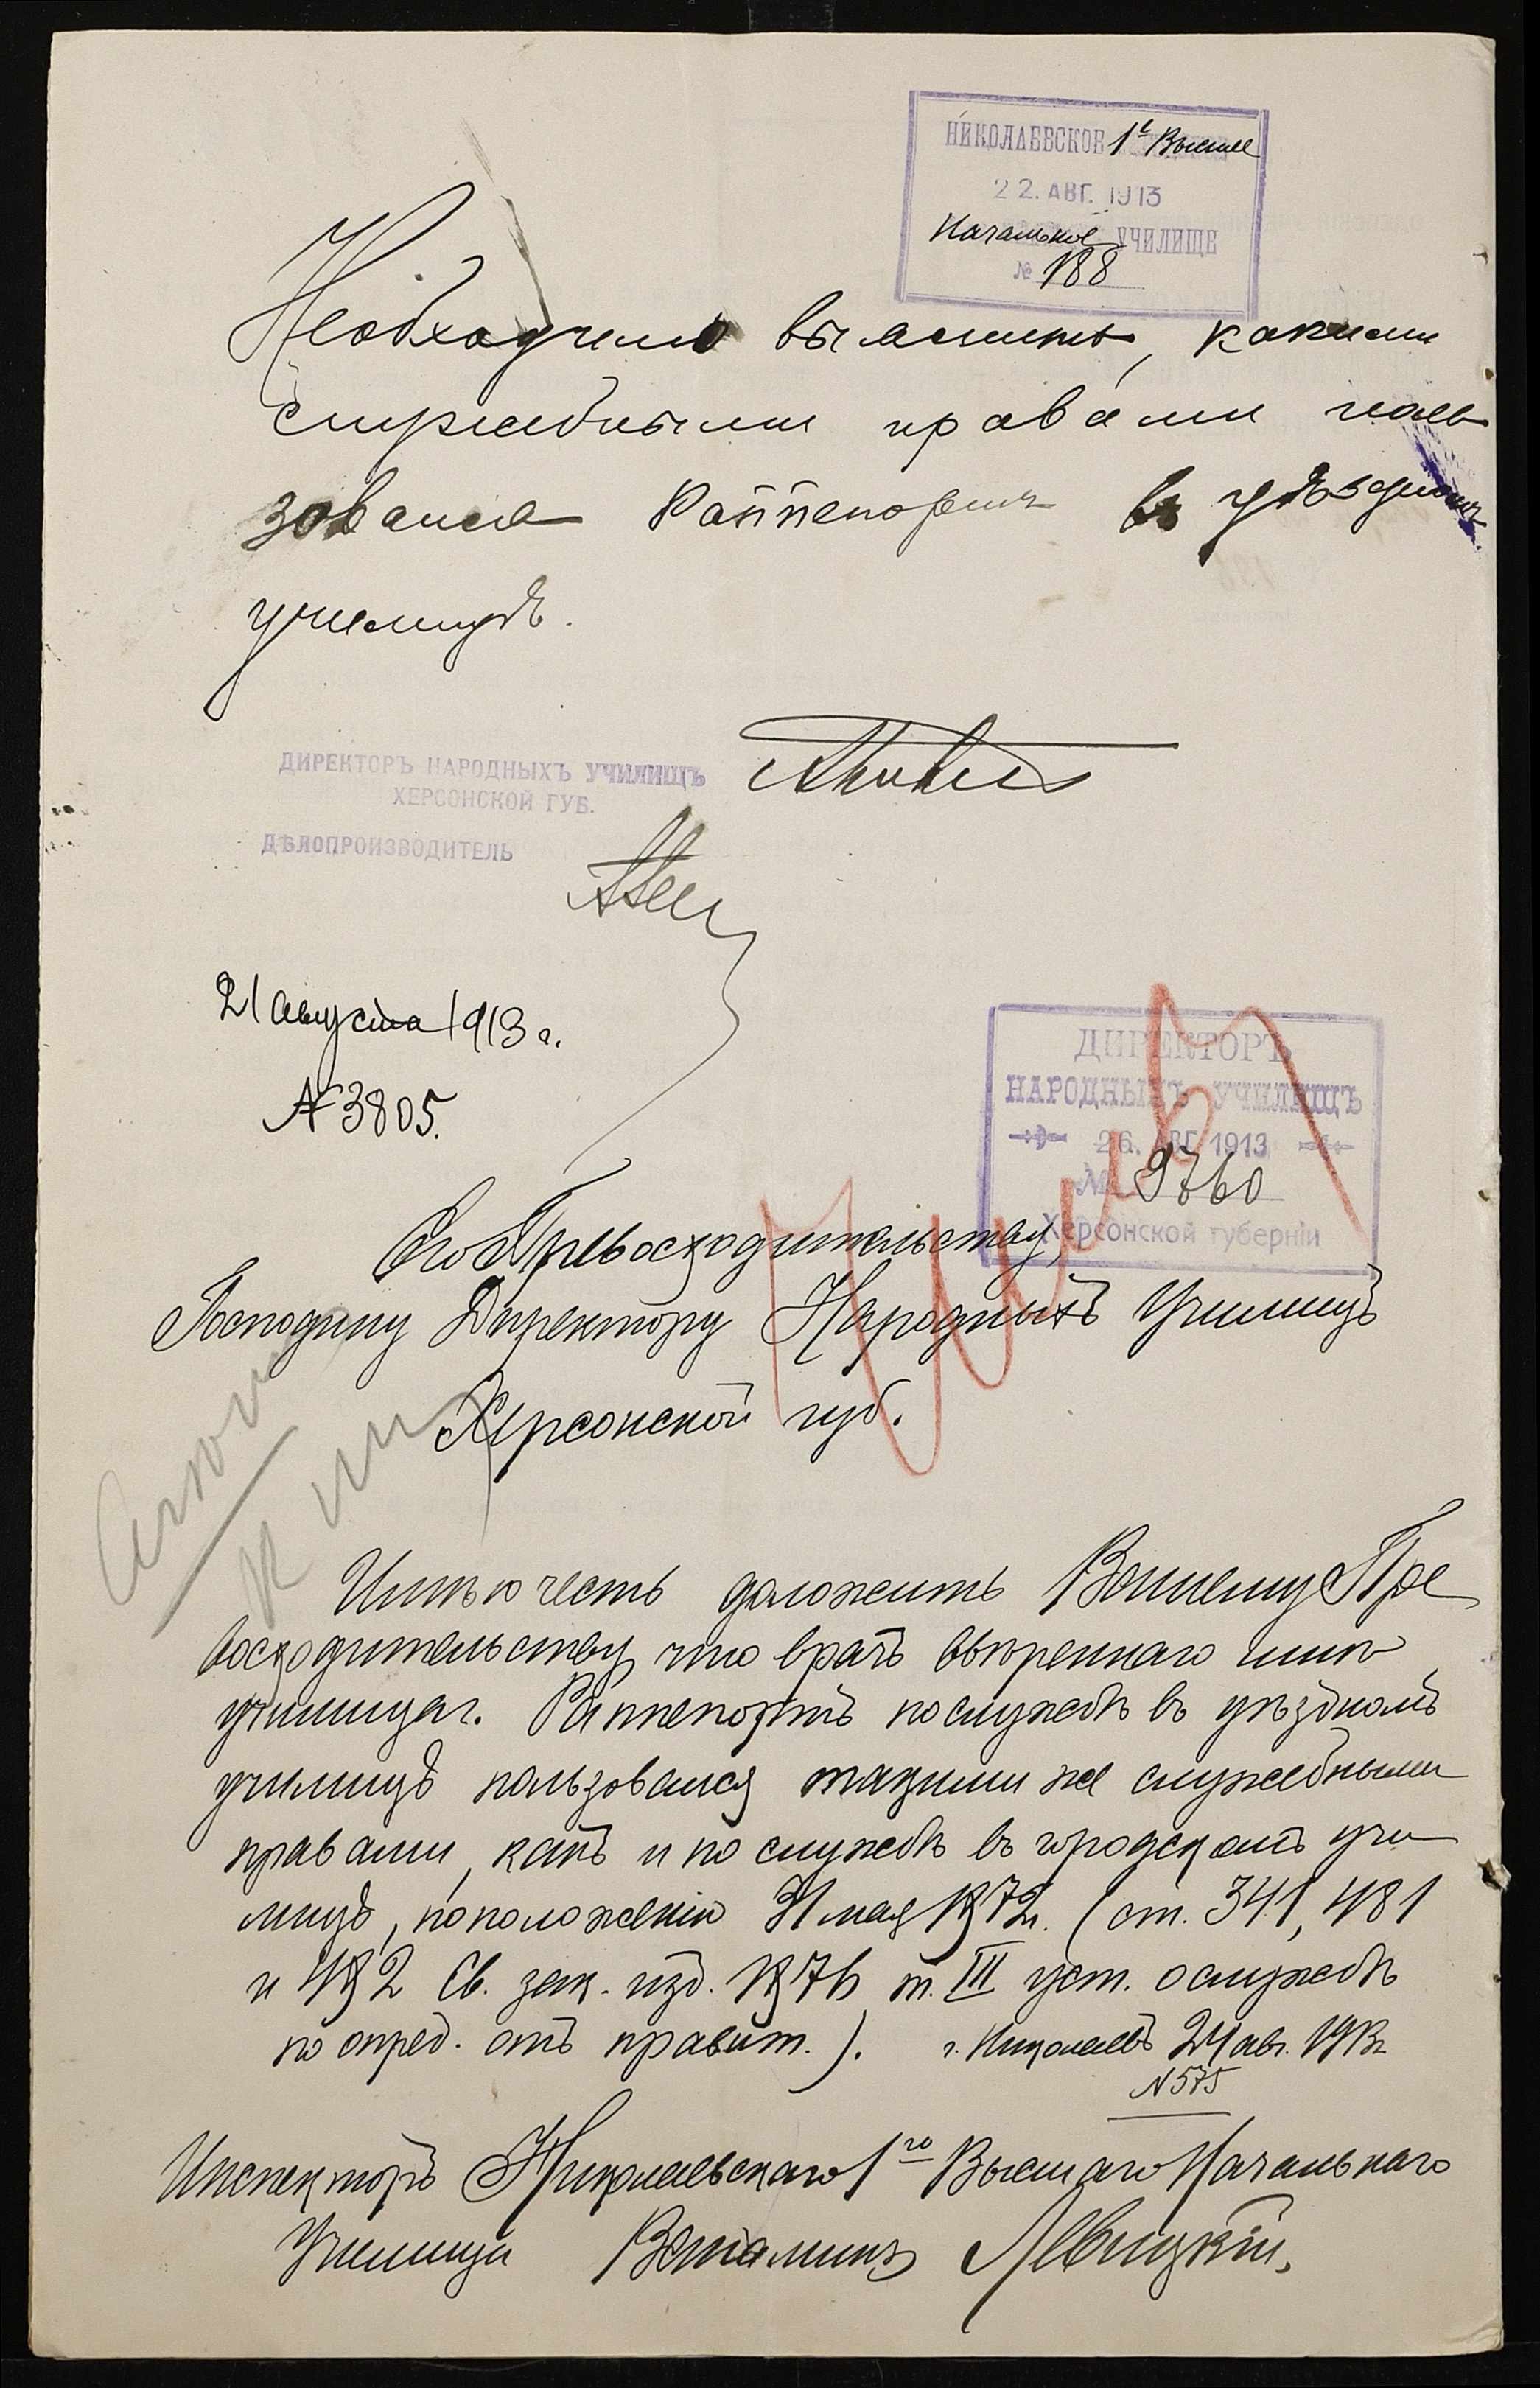 НИКОЛАЕВСКОЕ 1е Высшее
22. АВГ. 1913
Начальное УЧИЛИЩЕ
№ 188
Необходимо выяснить, какими
служебными правами поль
зовался Раппепортъ въ уѣздномъ
училищѣ.
ДИРЕКТОРЪ НАРОДНЫХЪ УЧИЛИЩЪ
ХЕРСОНСКОЙ ГУБ.
ДѢЛОПРОИЗВОДИТЕЛЬ
21 августа 1913 г.
№ 3805.
ДИРЕКТОРЪ
НАРОДНЫХЪ УЧИЛИЩЪ
26. АВГ. 1913
№ 9760
Херсонской губерніи
Его Превосходительству,
Господину Директору Народныхъ Училищъ
Херсонской губ.
Имѣю честь доложить Вашему Пре
восходительству, что врачъ ввѣреннаго мнѣ
училища г. Раппепортъ по службѣ въ уѣздномъ
училищѣ пользовался такими же служебными
правами, какъ и по службѣ въ городскомъ учи
лищѣ, по положенію 31 мая 1872 г. (ст. 341, 481
и 482 Св. зак. изд. 1876 т. III уст. о службѣ
по опред. отъ правит.). г. Николаевъ 24 авг. 1913 г.
№ 575
Инспекторъ Николаевскаго 1го Высшаго Начальнаго
Училища Веніаминъ Левицкій.